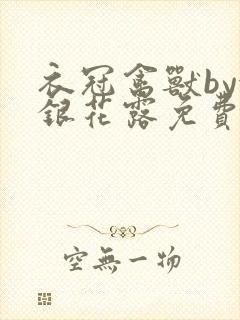 衣冠禽獸by
銀花露免費
空無一物